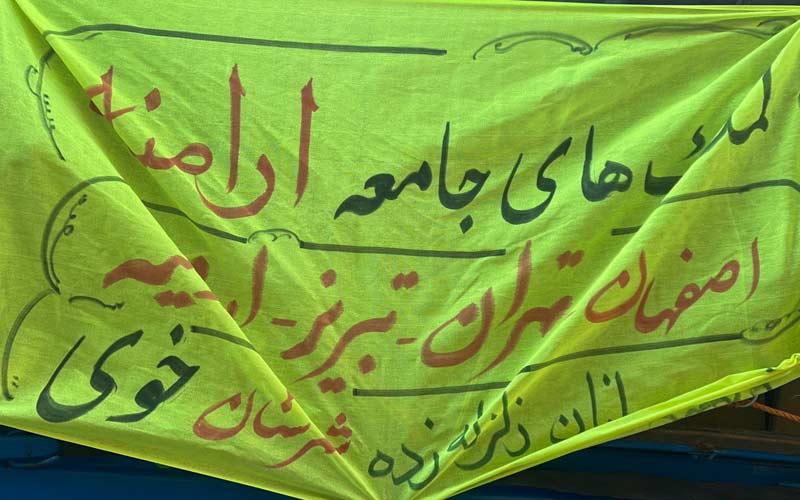 کمک های جامعه ارامنه
اصفهان تهران - تبریز - ارومیه
زلزله زده شهرستان خوی